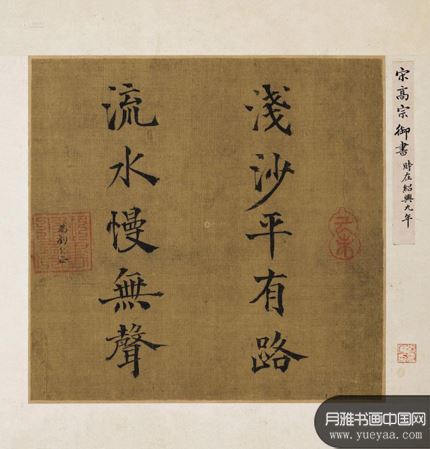 宋高宗御書時在紹興九年
淺沙平有路
流水慢無聲
月雅书画中国网
www.yueyaa.com